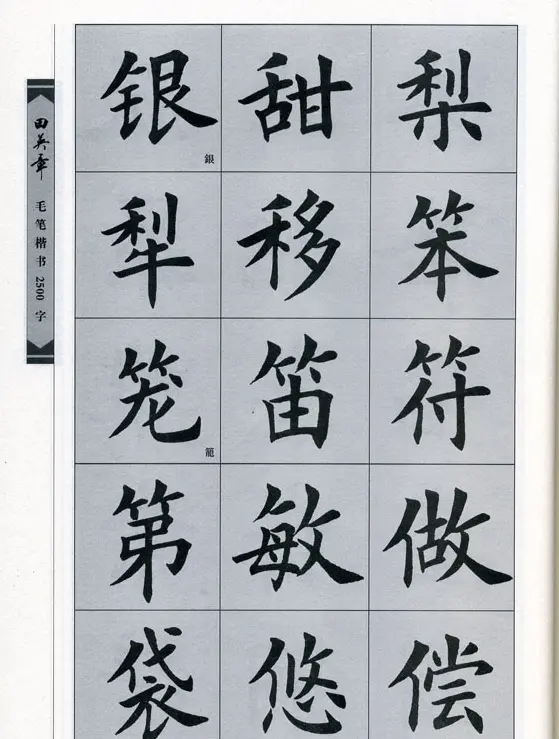 田英章
毛笔楷书2500字
银 甜 梨
銀
犁 移 笨
笼 笛 符
籠
第 敏 做
袋 悠 偿